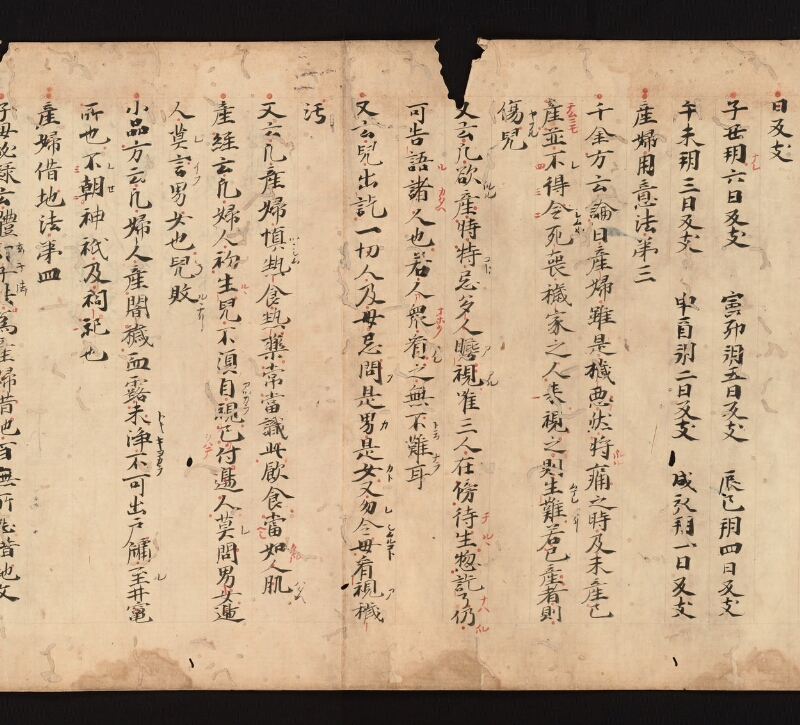 日反支
子丑朔六日反支 寅卯朔五日反支 辰巳朔四日反支
午未朔三日反支 申酉朔二日反支 戌亥朔一日反支
産婦用意法第三
千金方云論曰産婦雖是穢悪然将痛之時及未産已
産並不得令死喪穢家之人来視之則生難若已産者則
傷兒
又云凡欲産時特忌多人瞻視唯三人在傍待生惣訖了仍
可告語諸人也若人衆看之無不難耳
又云兒出訖一切人及母忌問是男是女又勿令母看視穢
汚
又云凡産婦慎熱食熱藥常當識此飲食當如人肌
産経云凡婦人初生兒不須自視已付邊人莫問男女邊
人莫言男女也兒敗
小品方云凡婦人産闇穢血露未浄不可出戸牖至井竈
所也不朝神祇及祠祀也
産婦借地法第四
子母秘録云體玄子法為産婦借地百無所忌借地文